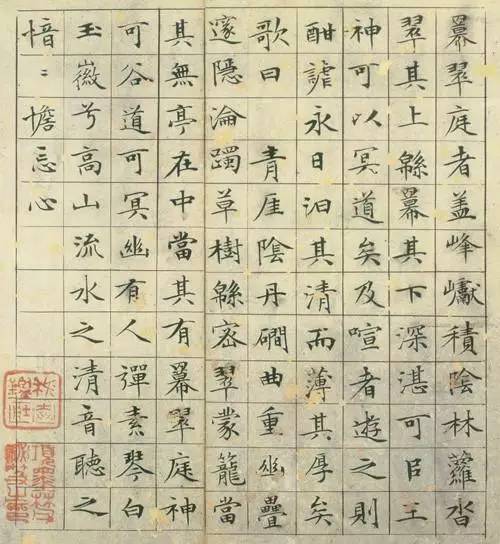 冪翠庭者盖峰巘積陰林蘿沓
翠其上緜冪其下深湛可㠯王
神可以冥道矣及喧者遊之則
酣謔永日汩其清而薄其厚矣
歌曰 青厓陰丹磵曲重幽疊
邃隱淪躅草樹緜密翠蒙籠當
其無亭在中當其有冪翠庭神
可谷道可冥幽有人彈素琴白
玉徽兮高山流水之清音聽之
愔〻憺忘心